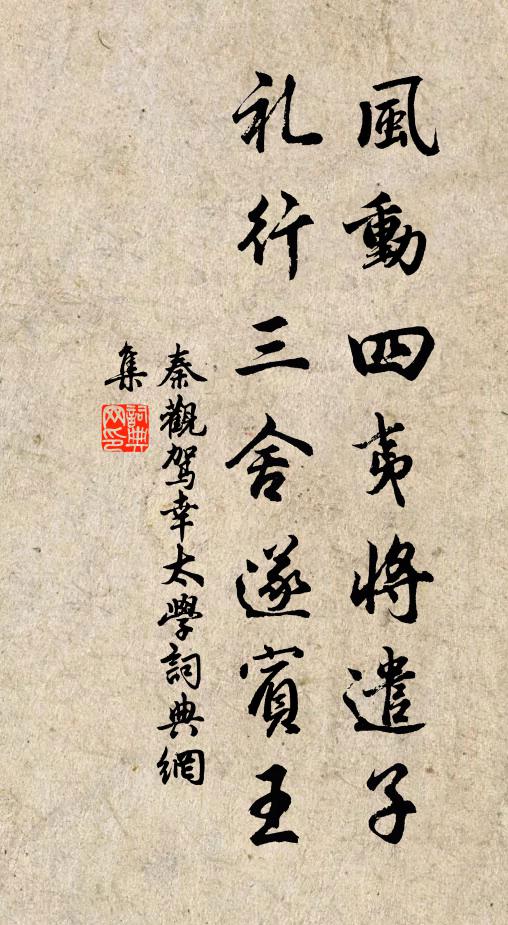 風動四夷將遣子
礼行三舍遂賓王
秦觀駕幸太學詞典網
集
詞典
网印